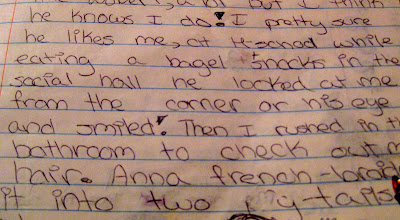 but I think
he knows I do! I pretty sure
he likes me, at while
eating a bagel + snacks in the
social hall he looked at me
from the corner or his eye
and smiled! Then I rushed in th
bathroom to check out m
hair. Anna french-braid
it into two pig-tails